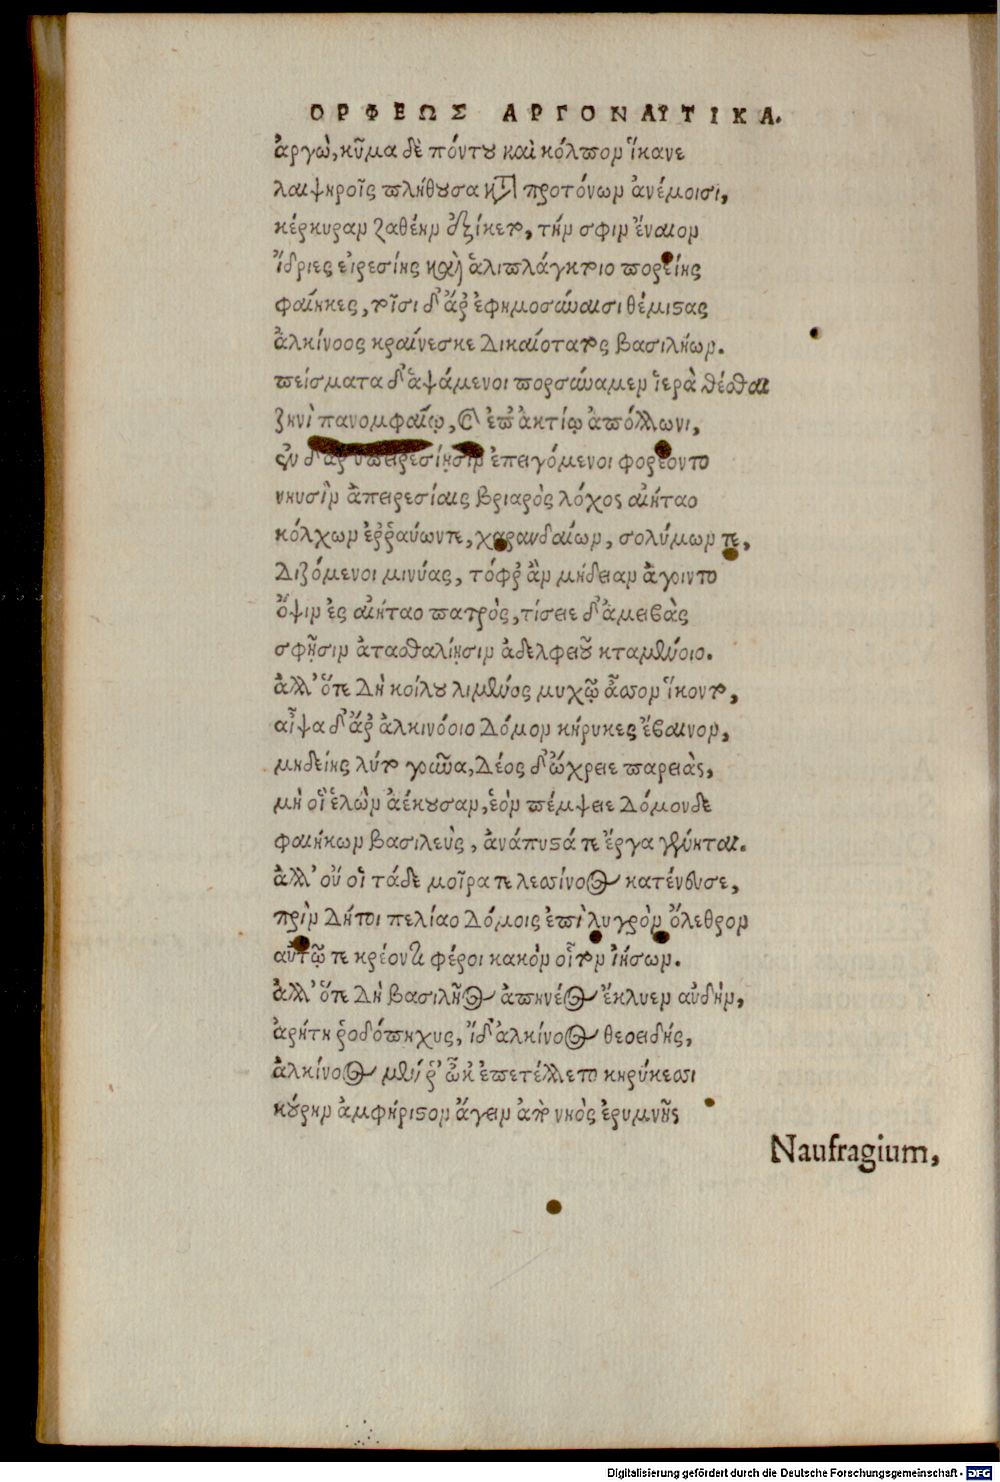 ΟΡΦΕΩΣ ΑΡΓΟΝΑΥΤΙΚΑ.
ἀργὼ, κῦμα δὲ πόντου καὶ κόλπον ἵκανε
λαιψηροῖς πλήθουσα κατὰ προτόνων ἀνέμοισι,
κέρκυραν ζαθέην δ' ἷκετο, τήν σφιν ἔναιον
ἴδριες εἰρεσίης καὶ ἁλιπλάγκτοιο πορείης
φαίηκες, τοῖσι δ' ἄρ' ἐφημοσύναισι θέμιστας
ἀλκίνοος κραίνεσκε δικαιότατος βασιλήων.
πείσματα δ' ἁψάμενοι πορσύναμεν ἱερὰ θέσθαι
ζηνὶ πανομφαίῳ, καὶ ἐπ' ἀκτίῳ ἀπόλλωνι,
ἐν δ' ἄρ' ὑπειρεσίῃσιν ἐπειγόμενοι φορέοντο
νηυσὶν ἀπειρεσίαις βριαρὸς λόχος αἰήταο
κόλχων ἐρραύων τε, χαρανδαίων, σολύμων τε,
διζόμενοι μινύας, τόφρ' ἂν μήδειαν ἄγοιντο
ὄψιν ἐς αἰήταο πατρὸς, τίσειε δ' ἀμειβὰς
σφῇσιν ἀτασθαλίῃσιν ἀδελφειοῦ κταμένοιο.
ἀλλ' ὅτε δὴ κοίλου λιμένος μυχῷ ἆσσον ἵκοντο,
αἶψα δ' ἄρ' ἀλκινόοιο δόμον κήρυκες ἔβαινον,
μηδείης λύτο γοῦνα, δέος δ' ὤχρειε παρειὰς,
μή οἱ ἑλὼν ἀέκουσαν, ἑὸν πέμψειε δόμονδε
φαιήκων βασιλεὺς, ἀνάπυστά τε ἔργα γένηται.
ἀλλ' οὔ οἱ τάδε μοῖρα τελεσσίνοος κατένευσε,
πρὶν δήτοι πελίαο δόμοις ἐπὶ λυγρὸν ὄλεθρον
αὐτῷ τε κρέοντι φέροι κακὸν οἶτον ἰήσων.
ἀλλ' ὅτε δὴ βασιλῆος ἀπηνέος ἔκλυεν αὐδὴν,
ἀρήτη ῥοδόπηχυς, ἴδ' ἀλκίνοος θεοειδής,
ἀλκίνοος μέν ῥ' ὦκ' ἐπετέλλετο κηρύκεσσι
κούρην ἀμφήριστον ἄγειν ἀπὸ νηὸς ἐρυμνῆς
Naufragium,
Digitalisierung gefördert durch die Deutsche Forschungsgemeinschaft - DFG